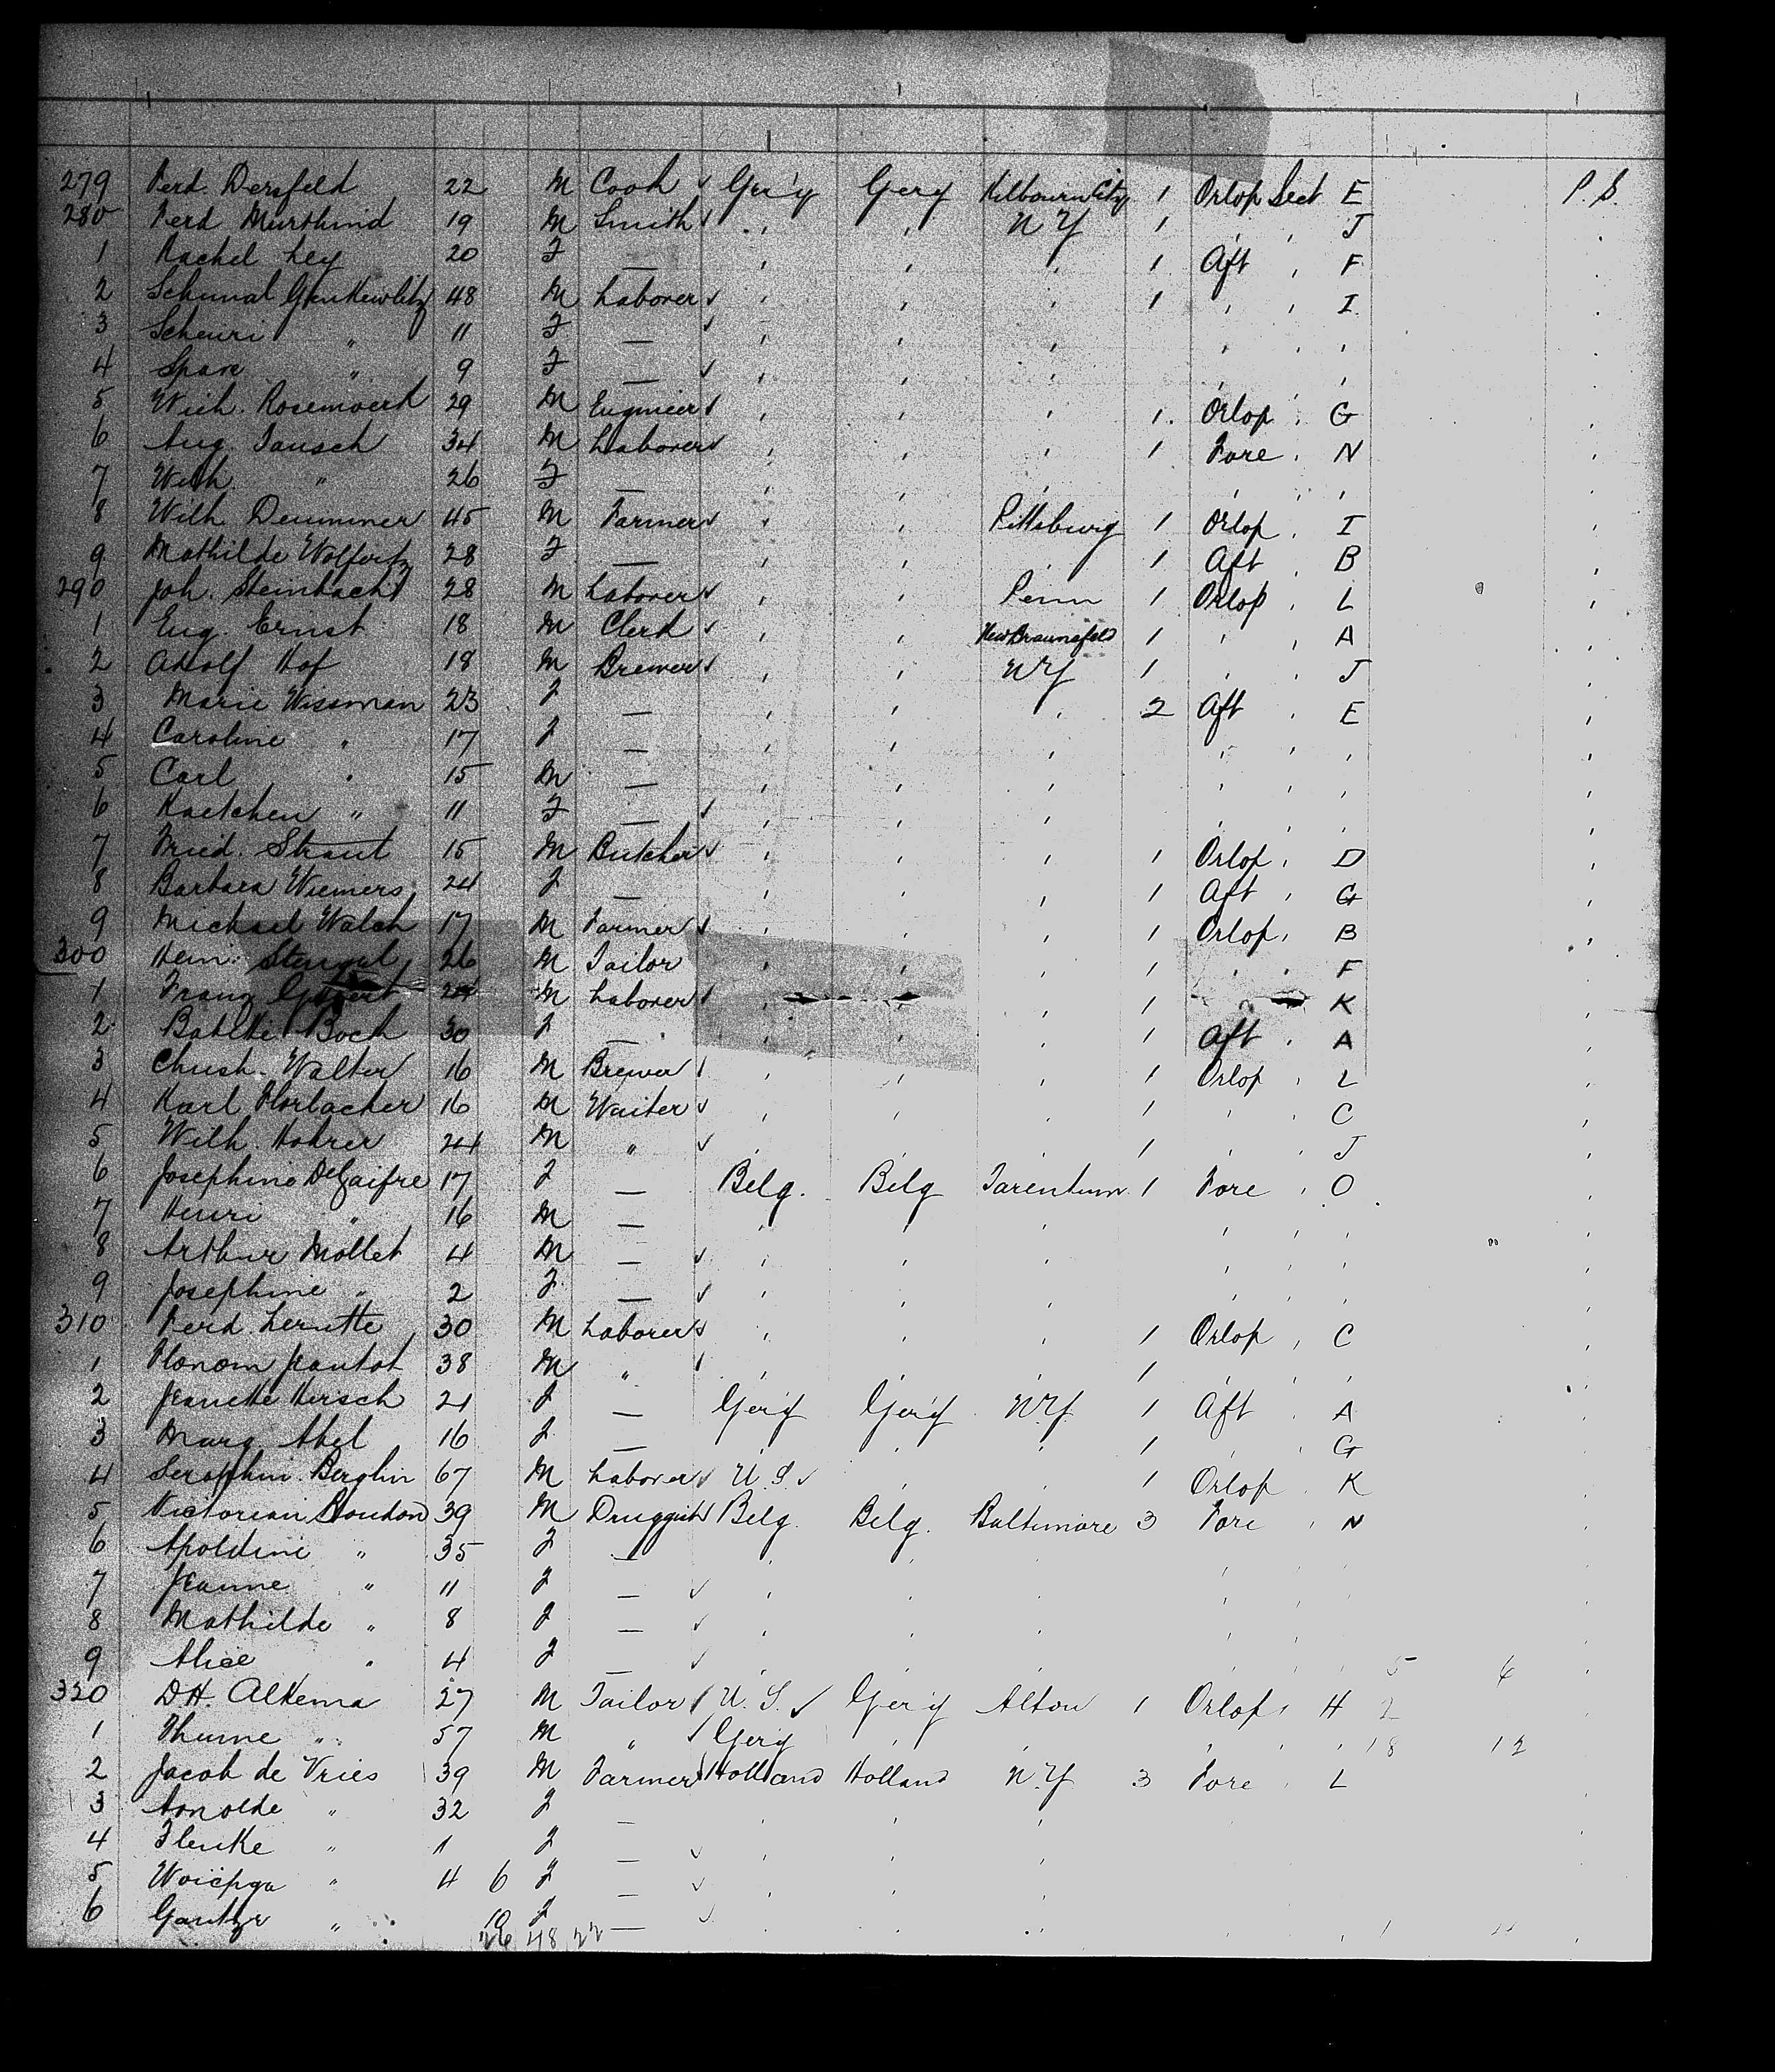 279 Ferd. Dersfeld 22 M Cook ✓ Ger'y Gery Kilbourn City 1 Orlop Sect E P. S.
280 Ferd 19 M Smith ✓ " " N Y 1 " " J "
1 Rachel Ley 20 F — " " " 1 Aft " F "
2 Schmal 48 M Laborer ✓ " " " 1 " " I "
3 Scheuri " 11 F — ✓ " " " " " " "
4 " 9 F — ✓ " " " " " " "
5 29 M Engineer ✓ " " " 1 Orlop " G "
6 Aug. Jausch 34 M Laborer ✓ " " " 1 Fore " N "
7 Wilh " 26 F — " " " " " " "
8 Wilh Demmer 45 M Farmer ✓ " " Pittsburg 1 Orlop " I "
9 Mathilde 28 F — " " " 1 Aft " B "
290 Joh. Steinbach 28 M Laborer ✓ " " Penn 1 Orlop " L "
1 Eug. Ernst 18 M Clerk ✓ " " New Braunsfeld 1 " " A "
2 Adolf Hof 18 M Brewer ✓ " " N Y 1 " " J "
3 Marie Wissman 23 F — " " " 2 Aft " E "
4 Caroline " 17 F — " " " " " " "
5 Carl " 15 M — " " " " " " "
6 Kaetchen " 11 F — ✓ " " " " " " "
7 Fried. Straut 15 M Butcher ✓ " " " 1 Orlop " D "
8 Barbara Wiemers 24 F — " " " 1 Aft " G "
9 Michael Walch 17 M Farmer ✓ " " " 1 Orlop " B "
300 Hein. Stengel 26 M Tailor " " " 1 " " F "
1 Franz 24 M Laborer ✓ " " " 1 " " K "
2 Boch 30 F — " " " 1 Aft " A "
3 Christ. Walter 16 M Brewer ✓ " " " 1 Orlop " L "
4 Karl Horlacher 16 M Waiter ✓ " " " 1 " " C "
5 Wilh. Hohrer 24 M " ✓ " " " 1 " " J "
6 Josephine 17 F — Belg. Belg Tarentum 1 Fore " O "
7 Henri " 16 M — " " " " " " "
8 Arthur Mollet 4 M — ✓ " " " " " " "
9 Josephine " 2 F — ✓ " " " " " " "
310 Ferd Lerutte 30 M Laborer ✓ " " " 1 Orlop " C "
1 Jeantot 38 M " ✓ " " " 1 " " " "
2 Jeanette Hirsch 21 F — Gery Ger'y N.Y. 1 Aft " A "
3 Marg Abel 16 F — " " " 1 " " G "
4 Seraphin Berglin 67 M Laborer ✓ U. S. ✓ " " 1 Orlop " K "
5 Victorian 39 M Druggist ✓ Belg. Belg. Baltimore 3 Fore " N "
6 Apoldine " 35 F — " " " " " " "
7 Jeanne " 11 F — ✓ " " " " " " "
8 Mathilde " 8 F — ✓ " " " " " " "
9 Alice " 4 F — ✓ " " " " " " 5 6 "
320 D H. Alkema 27 M Tailor ✓ U. S. ✓ Ger'y Alton 1 Orlop " H 2
1 " 57 M " ✓ Gery " " " " " 18 12
2 Jacob de Vries 39 M Farmer ✓ Holland Holland N.Y 3 Fore " L
3 " 32 F — " " "
4 Flenke " 1 F — ✓ " " "
5 " 4 6 F — ✓ " " "
6 " 10 F — ✓ " " "
26 48 22